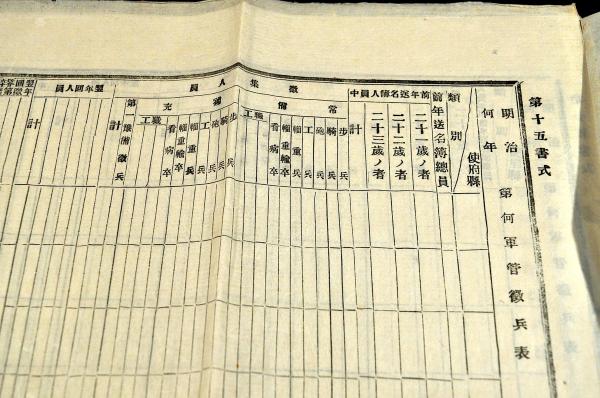 第十五書式
明治何年 第何軍管徴兵表
使府縣
類別
前年送名簿總員
前年送名簿人員中
二十一歳ノ者
二十二歳ノ者
二十三歳ノ者
計
徴集人員
常備
步兵
騎兵
砲兵
工兵
輜重兵
輜重輸卒
看病卒
職工
補充
步兵
騎兵
砲兵
工兵
輜重兵
輜重輸卒
看病卒
職工
第一豫備徴兵
計
翌年回人員
計